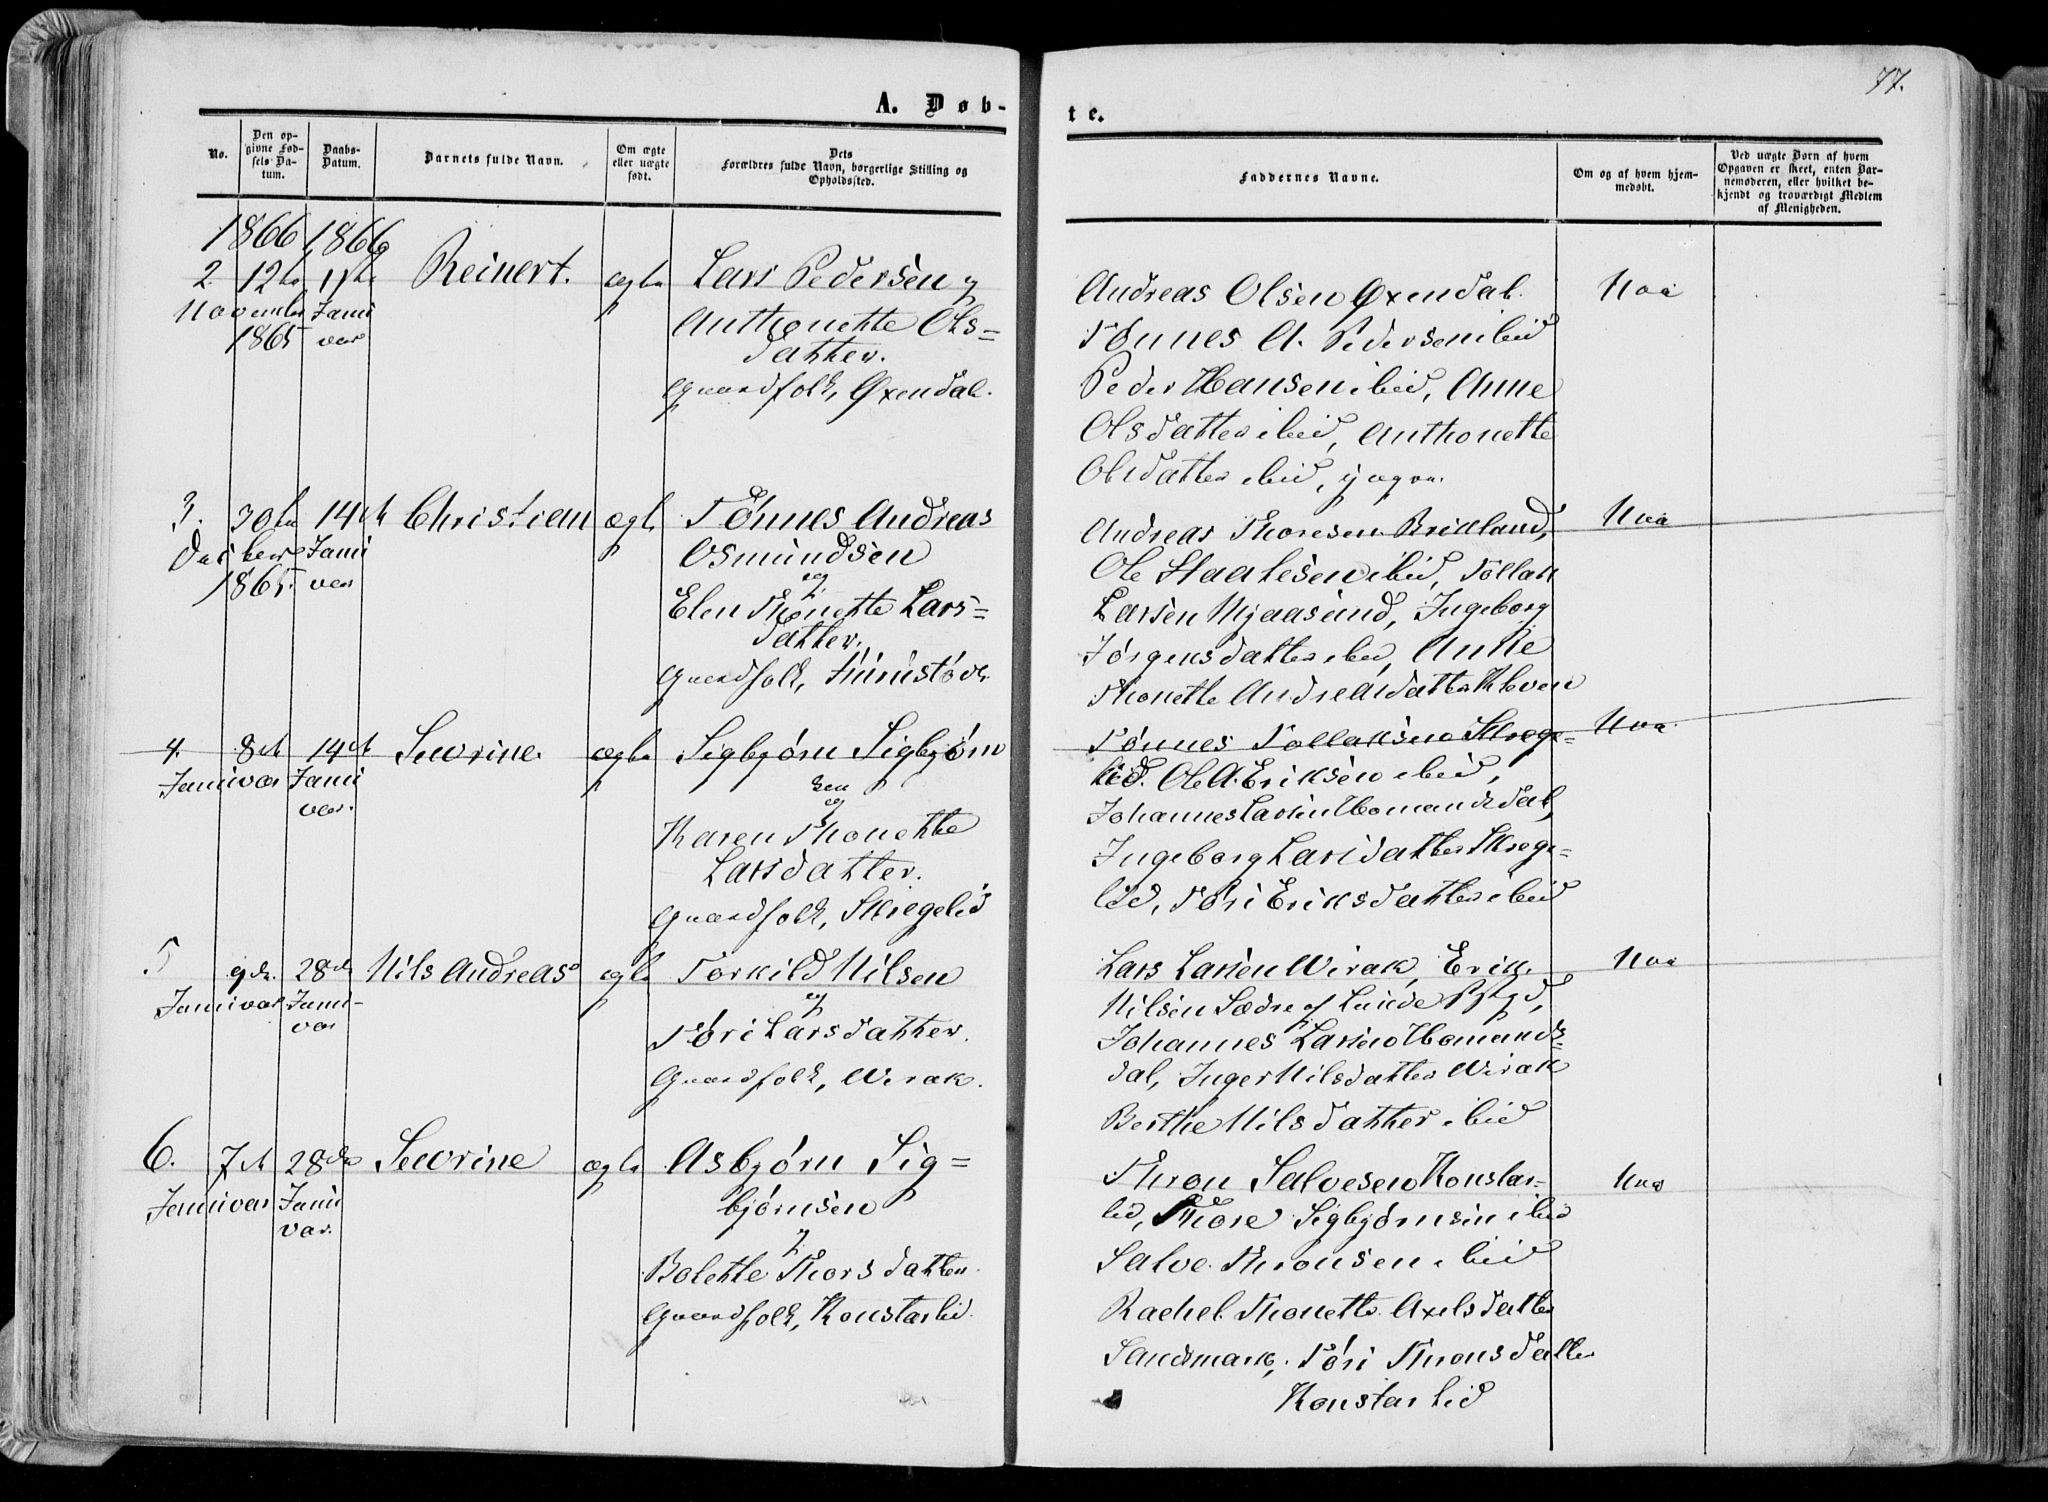 77.
A. Døb-
te.
No.
Den op-
givne Fød-
sels-Da-
tum.
Daabs-
Datum.
Barnets fulde Navn.
Om ægte
eller uægte
født.
Dets
Forældres fulde Navn, borgerlige Stilling og
Opholdssted.
Faddernes Navne.
Om og af hvem hjem-
medøbt.
Ved uægte Børn af hvem
Opgaven er skeet, enten Bar-
nemoderen, eller hvilket be-
kjendt og troværdigt Medlem
af Menigheden.
1866 1866
2. 12te Reinert. ægte Lars Pedersen og
November Janu
1865 var
Anthonette Ols=
datter.
Gaardfolk, Øxendal.
Andreas Olsen Øxendal.
Tønnes A. Pedersen ibid
Peder Hansen ibid, Anne
Olsdatter ibid, Anthonette
Olsdatter ibid,
3. 30te 14de Christian ægte Tønnes Andreas
Decbere Janu
1865. var
Osmundsen
og
Elen Thonette Lars=
datter.
Gaardfolk,
Andreas Thoresen
Ole Staalesen ibid, Tollak
Larsen Mjaasund, Ingeborg
Jørgensdatter ibid, Anne
Thonette Andreasdatter Kleven
4. 8de 14de Sevrine. ægte Sigbjørn Sigbjørn
Januar Janu
var.
sen
og
Karen Thonette
Larsdatter.
Gaardfolk, Skregelid
Tønnes Tollaksen Skrege=
lid. Ole A. Eriksen ibid,
Johannes Larsen Homandsdal,
Ingeborg Larsdatter Skrege=
lid, Tøri Eriksdatter ibid
5 9de. 28de Nils Andreas ægte Torkild Nilsen
Januar Janu-
var
og
Tøri Larsdatter.
Gaardfolk, Wirak.
Lars Larsen Wirak, Erik
Nilsen Sædre af Lunde Pgd,
Johannes Larsen Homands=
dal, Inger Nilsdatter Wirak
Berthe Nilsdatter ibid
6. 7de 28de Sevrine ægte Asbjørn Sig=
Januar Janu
var.
bjørnsen
og
Bolette Thorsdatter.
Gaardfolk, Konstarlid.
Thron Salvesen Konstar=
lid, Thore Sigbjørnsen ibid
Salve Thronsen ibid
Rachel Thonette Axelsdatter
Sandsmark, Tøri Thronsdatter
Konstarlid